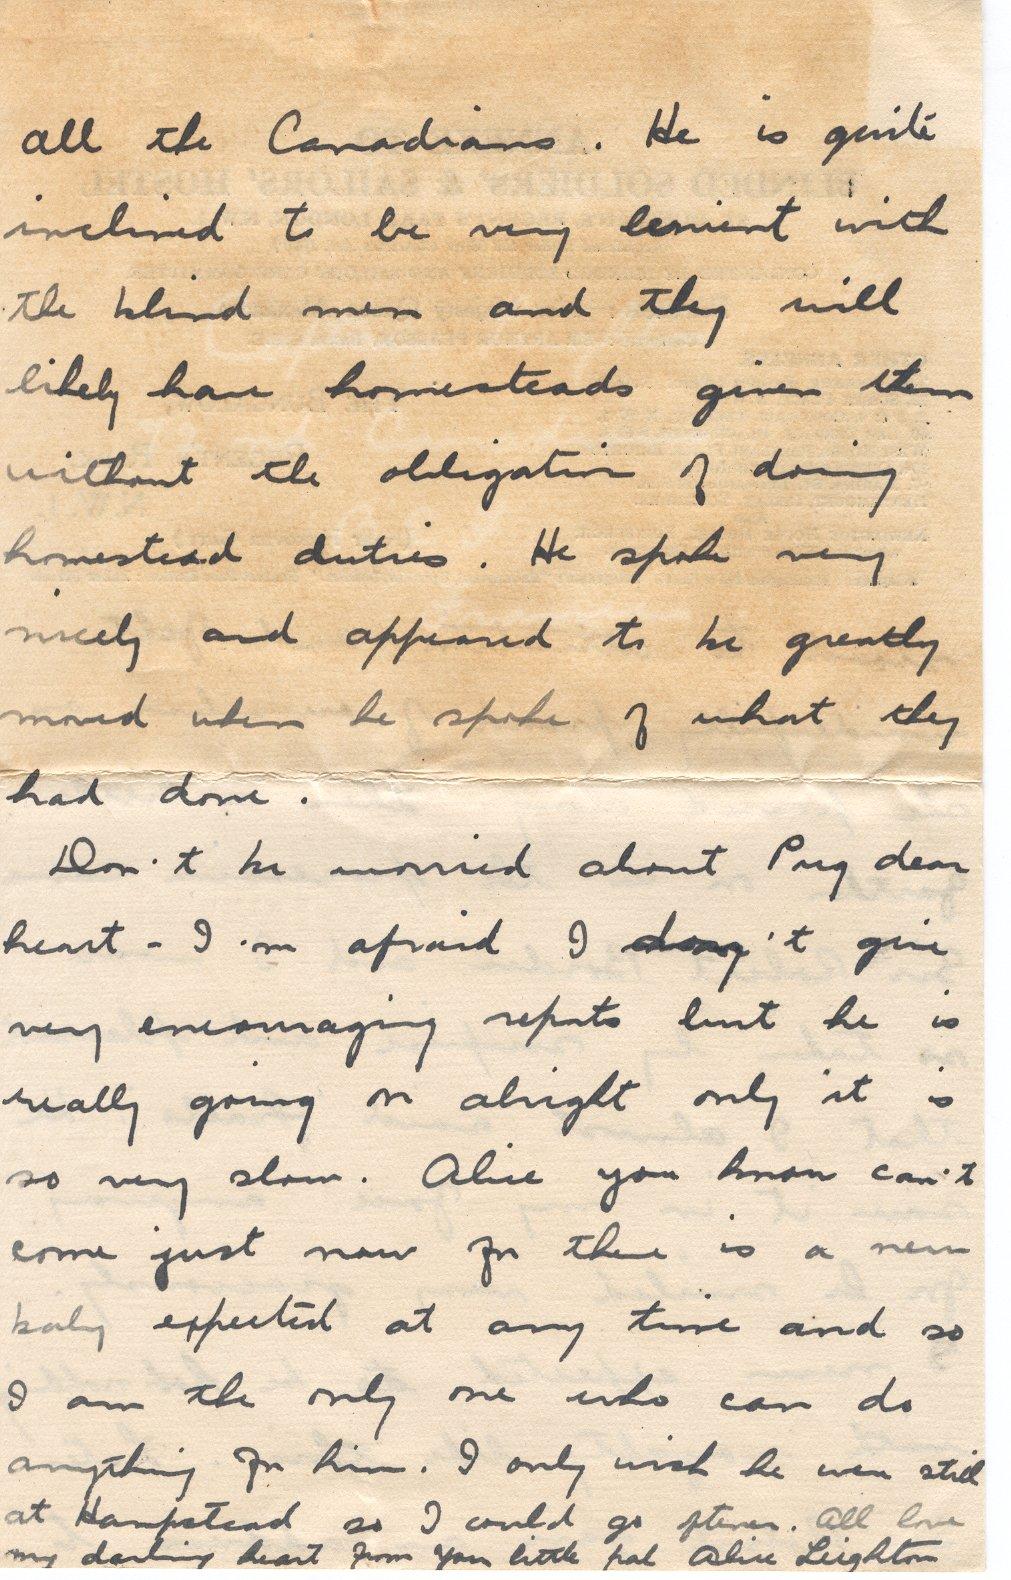 all the Canadians. He is quite
inclined to be very lenient with
the blind men and they will
likely have homesteads given them
without the obligation of doing
homestead duties. He spoke very
nicely and appeared to be greatly
moved when he spoke of what they
had done.
Don't be worried about Pug dear
heart - I'm afraid I don't give
very encouraging reports but he is
really going on alright only it is
so very slow. Alice you know can't
come just now for there is a new
baby expected at any time and so
I am the only one who can do
anything for him. I only wish he were still
at Hampstead so I could go oftener. All love
my darling heart from your little pal Alice Leighton